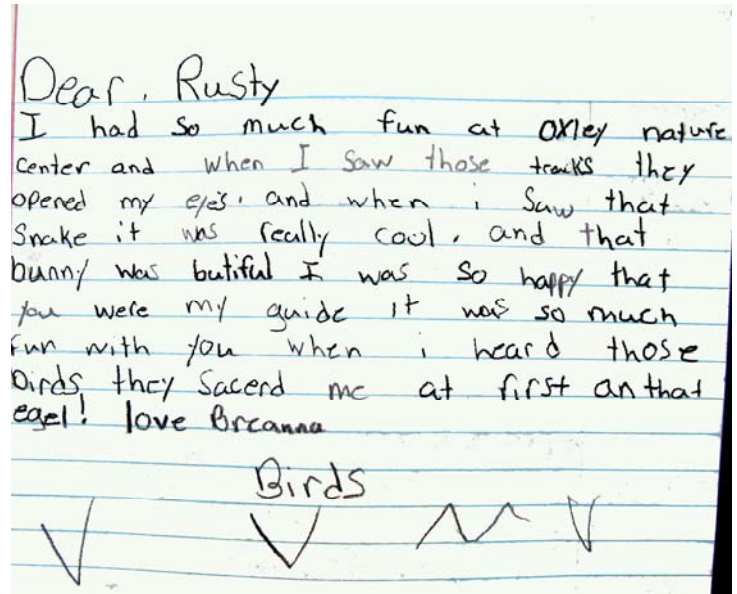 Dear, Rusty
I had so much fun at oxley nature
center and when I saw those tracks they
opened my eye's. and when i saw that
Snake it was really cool, and that
bunny was butiful I was so happy that
you were my guide it was so much
fun with you when i heard those
birds they sacerd me at first an that
egel! love Breanna
Birds